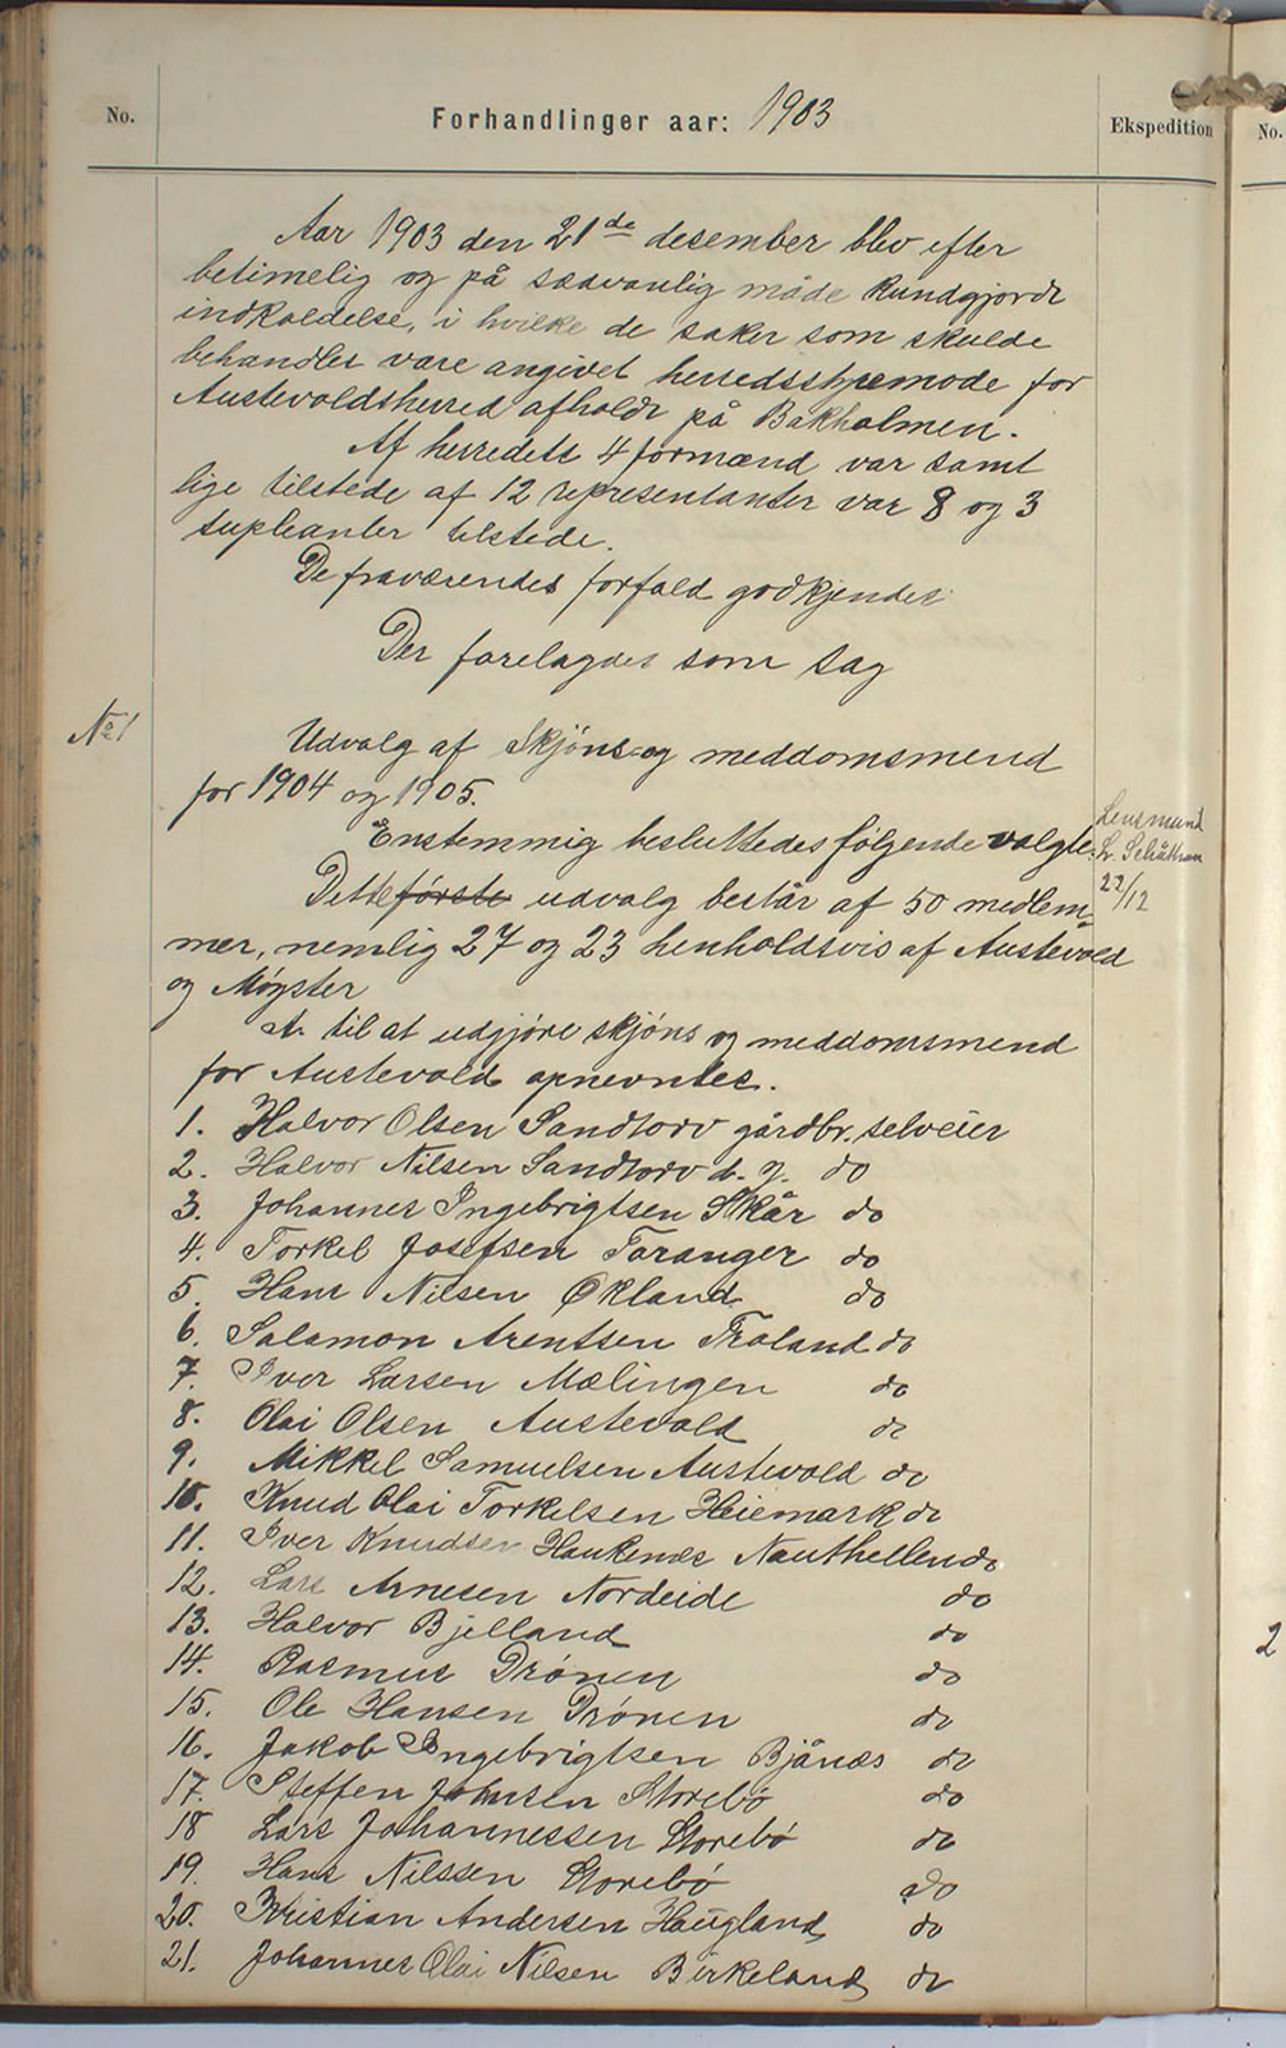 No.
Forhandlinger aar: 1903
Ekspedition
No.
Aar 1903 den 21de desember blev efter
betimelig og på sædvanlig måde kundgjordt
indkaldelse, i hvilke de saker som skulde
behandles vare angivet herredsstyremøde for
Austevoldsherred afholdt på Bakholmen.
Af herredets 4 formænd var samt
lige tilstede af 12 representanter var 8 og 3
supleanter tilstede.
De fraværendes forfald godkjendes
Der forelagdes som sag
No 1
Udvalg af Skjöns- og meddomsmend
for 1904 og 1905.
Enstemmig besluttedes følgende valgte:
Lensmand
L.
22/12
Dette første udvalg består af 50 medlem-
mer, nemlig 27 og 23 henholdsvis af Austevold
og Møgster
A. til at udgjöre skjöns og meddomsmend
for Austevold opnevntes.
1. Halvor Olsen Sandtorv gårdbr. selveier
2. Halvor Nilsen Sandtorv d. y. do
3. Johannes Ingebrigtsen Skår do
4. Torkel Josefsen Taranger do
5. Hans Nilsen Økland do
6. Salamon Arentsen Troland do
7. Iver Larsen Mælingen do
8. Olai Olsen Austevold do
9. Mikkel Samuelsen Austevold do
10. Knud Olai Torkelsen Heiemark do
11. Iver Knudsen Haukenes Nauthellen do
12. Lars Arnesen Nordeide do
13. Halvor Bjelland do
14. Rasmus Drönen do
15. Ole Hansen Drönen do
16. Jakob Ingebrigtsen Bjånæs do
17. Steffen Johnsen Storebö do
18 Lars Johannessen Storebö do
19. Hans Nilssen Storebö do
20. Kristian Andersen Haugland do
21. Johannes Olai Nilsen Birkeland do
2